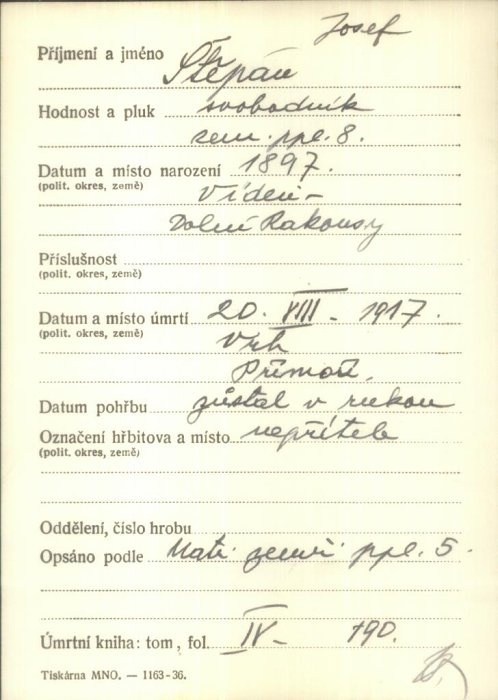 Josef
Příjmení a jméno Štěpán
Hodnost a pluk svobodník
zem. ppl. 8.
Datum a místo narození 1897.
(polit. okres, země) Vídeň -
Dolní Rakousy
Příslušnost
(polit. okres, země)
Datum a místo úmrtí 20. VIII - 1917.
(polit. okres, země) Vrh
Přímoří.
Datum pohřbu zůstal v rukou
Označení hřbitova a místo nepřítele
(polit. okres, země)
Oddělení, číslo hrobu
Opsáno podle Matr. zemř. ppl. 5.
Úmrtní kniha: tom, fol. IV - 190.
Tiskárna MNO. — 1163-36.